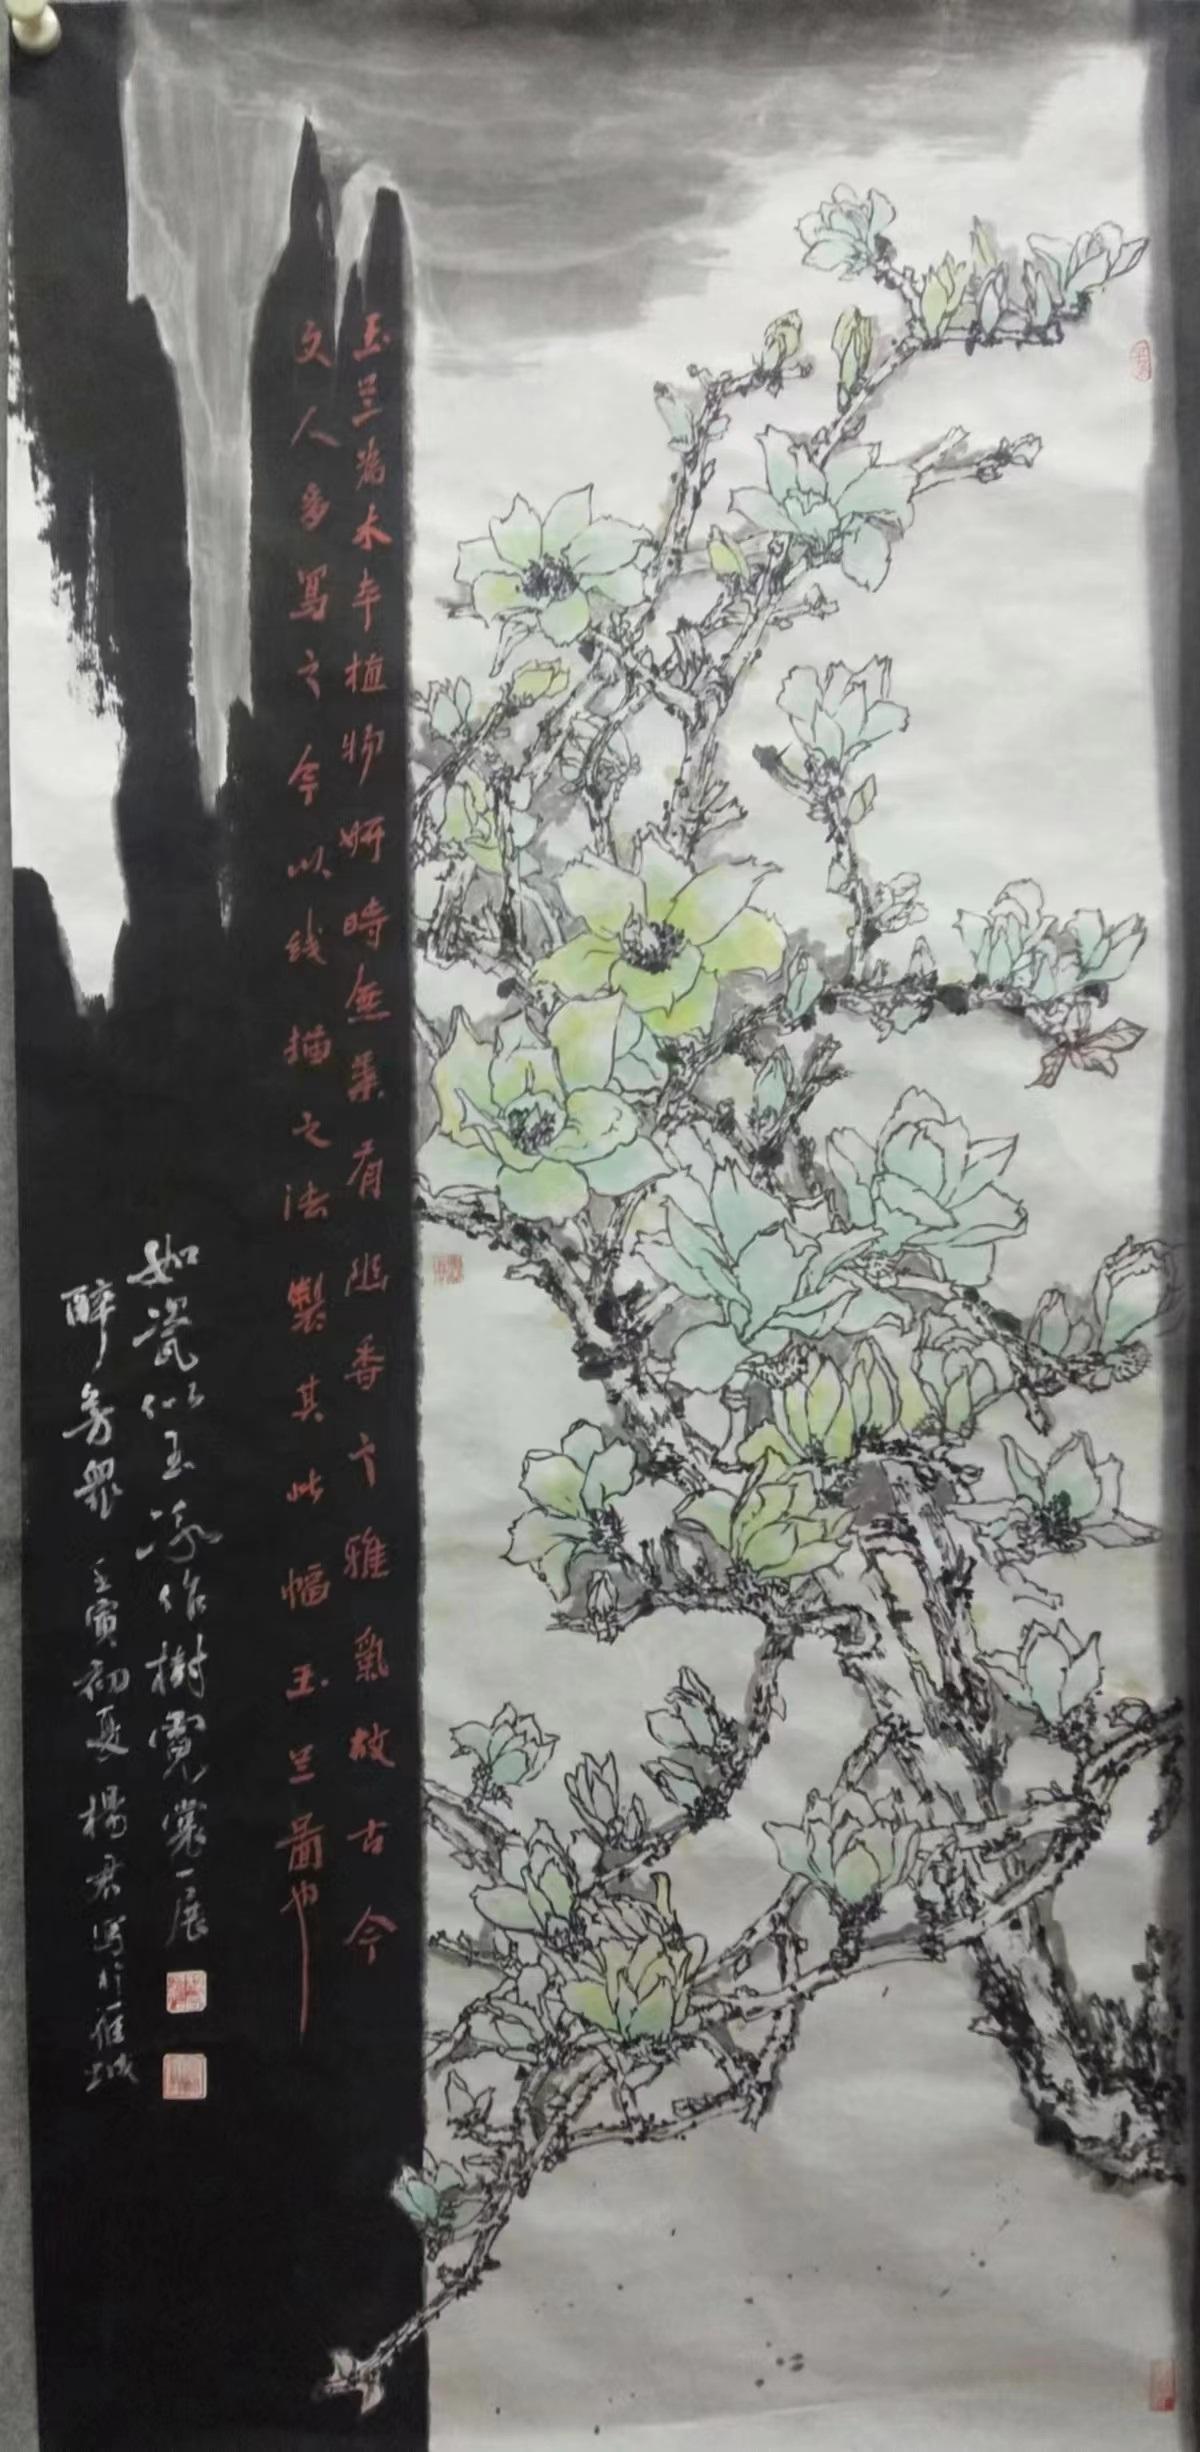 玉兰为木本植物妍時無葉有幽香之雅氣故古今
文人多寫之今以线描之法製其此幅玉兰畵也
如瓷似玉冰作樹霓裳一展
醉芳衆 壬寅初夏楊君写於雒城